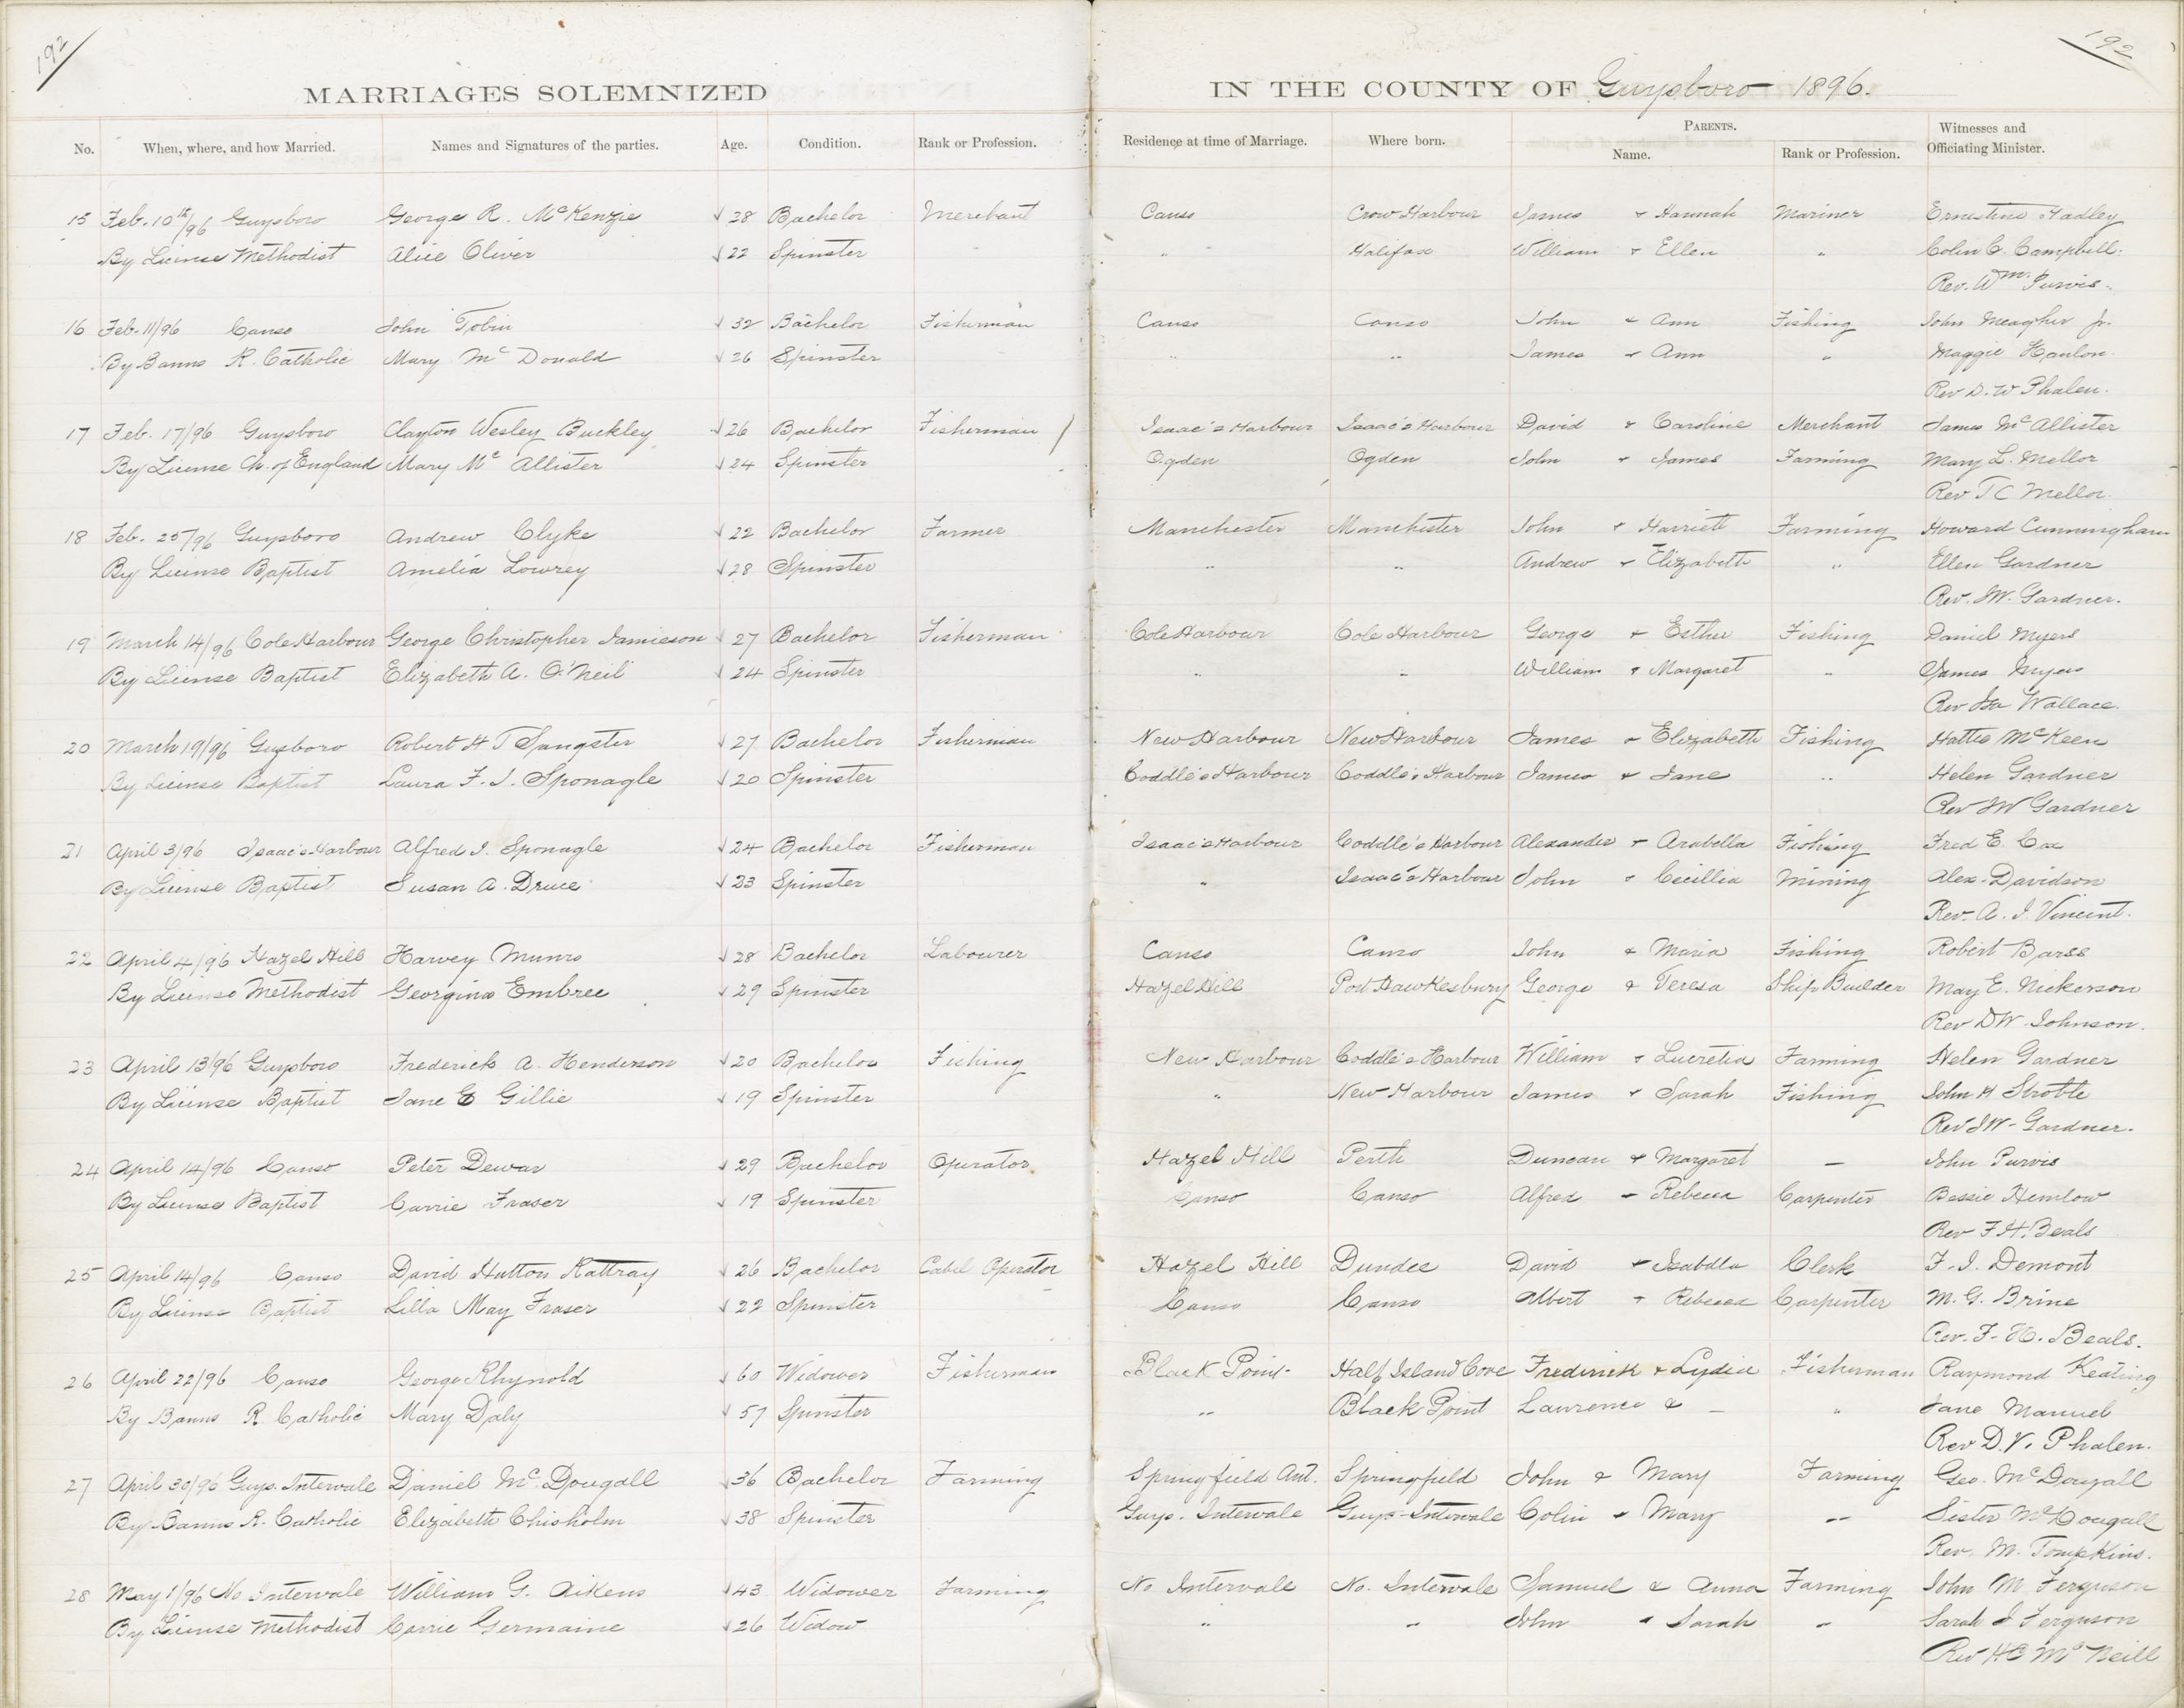 192
192
MARRIAGES SOLEMNIZED IN THE COUNTY OF Guysboro 1896.
No. When, where, and how Married. Names and Signatures of the parties. Age. Condition. Rank or Profession. Residence at time of Marriage. Where born. PARENTS. Name. Rank or Profession. Witnesses and Officiating Minister.
15 Feb. 10th/96 Guysboro George R. McKenzie √ 28 Bachelor Merchant Canso Crow Harbour James & Hannah Mariner Ernestine Hadley
By License Methodist Alice Oliver √ 22 Spinster " Halifax William & Ellen " Colin C. Campbell.
Rev. Wm. Purvis.
16 Feb. 11/96 Canso John Tobin √ 32 Bachelor Fisherman Canso Canso John & Ann Fishing John Meagher Jr.
By Banns R. Catholic Mary McDonald √ 26 Spinster " " James & Ann " Maggie Hanlon.
Rev D. W Phalen.
17 Feb. 17/96 Guysboro Clayton Wesley Buckley √ 26 Bachelor Fisherman / Isaac's Harbour Isaac's Harbour David & Caroline Merchant James McAllister
By License Ch. of England Mary McAllister √ 24 Spinster Ogden Ogden John & James Farming Mary L. Mellor
Rev T C Mellor.
18 Feb. 25/96 Guysboro Andrew Clyke √ 22 Bachelor Farmer Manchester Manchester John & Harriett Farming Howard Cunningham
By License Baptist Amelia Lowrey √ 28 Spinster " " Andrew & Elizabeth " Ellen Gardner
Rev. JW. Gardner.
19 March 14/96 Cole Harbour George Christopher Jamieson √ 27 Bachelor Fisherman Cole Harbour Cole Harbour George & Esther Fishing Daniel Myers
By License Baptist Elizabeth A. O'Neil √ 24 Spinster " " William & Margaret " James Myers
Rev Isa Wallace.
20 March 19/96 Gusboro Robert H T Sangster √ 27 Bachelor Fisherman New Harbour New Harbour James & Elizabeth Fishing Hattie McKeen
By License Baptist Laura F. J. Sponagle √ 20 Spinster Coddle's Harbour Coddle's Harbour James & Jane " Helen Gardner
Rev JW Gardner
21 April 3/96 Isaac's Harbour Alfred I. Sponagle √ 24 Bachelor Fisherman Isaac's Harbour Coddle's Harbour Alexander & Arabella Fishing Fred E. Cox
By License Baptist Susan A. Druce √ 23 Spinster " Isaac's Harbour John & Cecillia Mining Alex. Davidson
Rev. A. J. Vincent.
22 April 4/96 Hazel Hill Harvey Munro √ 28 Bachelor Labourer Canso Canso John & Maria Fishing Robert Barss
By License Methodist Georgina Embree √ 29 Spinster Hazel Hill Port Hawkesbury George & Teresa Ship Builder May E. Nickerson
Rev DW. Johnson.
23 April 13/96 Guysboro Frederick A. Henderson √ 20 Bachelor Fishing New Harbour Coddle's Harbour William & Lucretia Farming Helen Gardner
By License Baptist Jane E Gillie √ 19 Spinster " New Harbour James & Sarah Fishing John H Stroble
Rev JW. Gardner.
24 April 14/96 Canso Peter Dewar √ 29 Bachelor Operator Hazel Hill Perth Duncan & Margaret — John Purvis
By License Baptist Carrie Fraser √ 19 Spinster Canso Canso Alfred & Rebecca Carpenter Bessie Hemlow
Rev F. H. Beals
25 April 14/96 Canso David Hutton Rattray √ 26 Bachelor Cabel Operator Hazel Hill Dundee David & Isabella Clerk F. J. Demont
By License Baptist Lilla May Fraser √ 22 Spinster Canso Canso Albert & Rebecca Carpenter M. G. Brine
Rev. F. H. Beals.
26 April 22/96 Canso George Rhynold √ 60 Widower Fisherman Black Point Half Island Cove Frederick & Lydia Fisherman Raymond Keating
By Banns R. Catholic Mary Daly √ 57 Spinster " Black Point Lawrence & — " Jane Manuel
Rev D. V. Phalen.
27 April 30/96 Guys. Intervale Daniel McDougall √ 36 Bachelor Farming Springfield Ant. Springfield John & Mary Farming Geo. McDougall
By Banns R. Catholic Elizabeth Chisholm √ 38 Spinster Guys. Intervale Guys. Intervale Colin & Mary " Sister McDougall
Rev. M. Tompkins.
28 May 1/96 No Intervale William G. Aikens √ 43 Widower Farming No Intervale No. Intervale Samuel & Anna Farming John M Ferguson
By License Methodist Carrie Germaine √ 26 Widow " " John & Sarah " Sarah J Ferguson
Rev HC McNeill